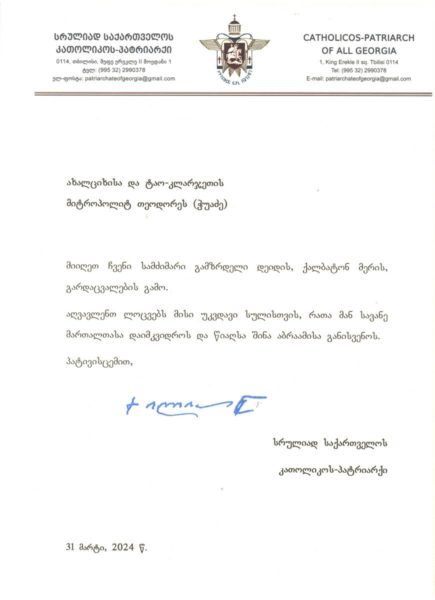 ᲡᲠᲣᲚᲘᲐᲓ ᲡᲐᲥᲐᲠᲗᲕᲔᲚᲝᲡ
ᲙᲐᲗᲝᲚᲘᲙᲝᲡ-ᲞᲐᲢᲠᲘᲐᲠᲥᲘ
0114, თბილისი, მეფე ერეკლე II მოედანი 1
ტელ: (995 32) 2990378
ელ-ფოსტა: patriarchateofgeorgia@gmail.com
CATHOLICOS-PATRIARCH
OF ALL GEORGIA
1, King Erekle II sq. Tbilisi 0114
Tel: (995 32) 2990378
E-mail: patriarchateofgeorgia@gmail.com
ახალციხისა და ტაო-კლარჯეთის
მიტროპოლიტ თეოდორეს (ჭუაძე)
მიიღეთ ჩვენი სამძიმარი გამზრდელი დეიდის, ქალბატონ მერის,
გარდაცვალების გამო.
აღვავლენთ ლოცვებს მისი უკვდავი სულისთვის, რათა მან სავანე
მართალთასა დაიმკვიდროს და წიაღსა შინა აბრაამისა განისვენოს.
პატივისცემით,
სრულიად საქართველოს
კათოლიკოს-პატრიარქი
31 მარტი, 2024 წ.